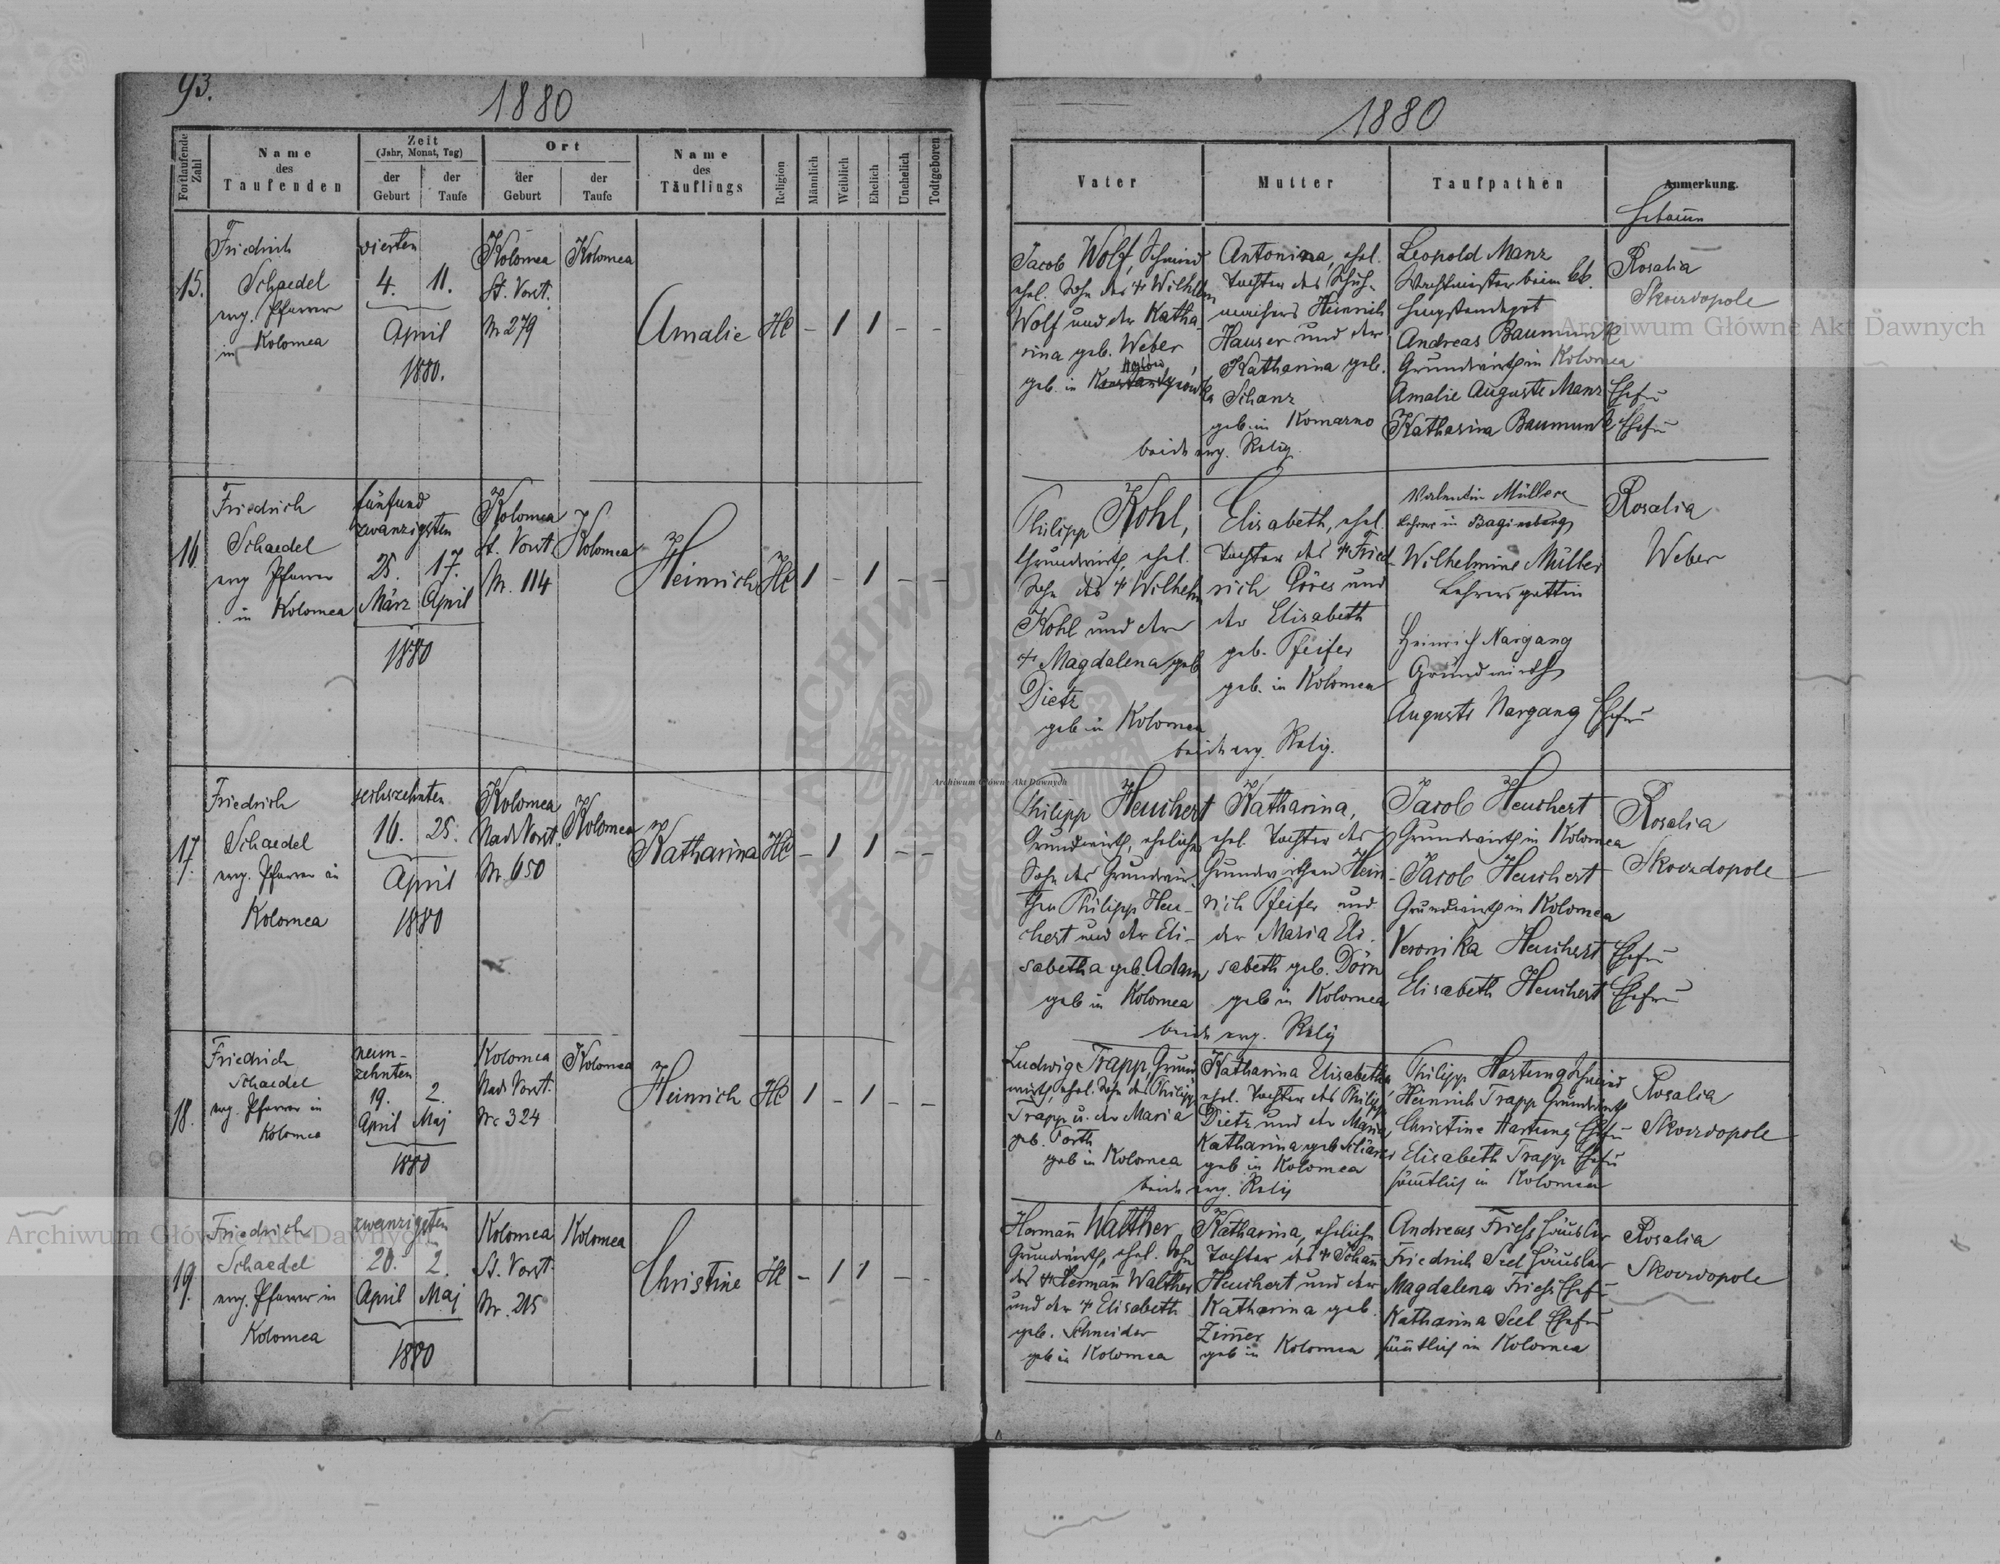 93.
1880
Fortlaufende Zahl
Name
des
Taufenden
Zeit
(Jahr, Monat, Tag)
der
Geburt
der
Taufe
Ort
der
Geburt
der
Taufe
Name
des
Täuflings
Religion
Männlich
Weiblich
Ehelich
Unehelich
Todtgeboren
15.
Friedrich
Schaedel
evg. Pfarrer
in Kolomea
vierten
4. 11.
April
1880.
Kolomea
St. Vorst.
Nr 279
Kolomea
Amalie
HC
– 1 1 – –
16.
Friedrich
Schaedel
evg Pfarrer
in Kolomea
fünfund
zwanzigsten
25. 17.
März April
1880
Kolomea
St. Vorst.
Nr. 114
Kolomea
Heinrich
HC
1 – 1 – –
17.
Friedrich
Schaedel
evg. Pfarrer in
Kolomea
sechszehnten
16. 25.
April
1880
Kolomea
Nad. Vorst.
Nr. 650
Kolomea
Katharina
HC
– 1 1 – –
18.
Friedrich
Schaedel
evg. Pfarrer in
Kolomea
neun-
zehnten
19. 2.
April Maj
1880
Kolomea
Nad. Vorst.
Nr 324
Kolomea
Heinrich
HC
1 – 1 – –
19.
Friedrich
Schaedel
evg. Pfarrer in
Kolomea
zwanzigsten
20. 2.
April Maj
1880
Kolomea
St. Vorst.
Nr. 215
Kolomea
Christine
HC
– 1 1 – –
1880
Vater
Mutter
Taufpathen
Anmerkung.
Hebamm
Jacob Wolf, Schmied
ehel. Sohn des + Wilhelm
Wolf und der Katha-
rina geb. Weber
geb. in
Antonina, ehel.
Tochter des Schuh-
machers Heinrich
Hauser und der
Katharina geb.
Schanz
geb. in Komarno
beide evg. Relig.
Leopold Manz
Wachtmeister beim kk.
Hengstendepot
Andreas Baumunk
Grundwirth in Kolomea
Amalie Auguste Manz Ehefr
Katharina Baumunk Ehefr
Rosalia
Skovrdopole
Philipp Kohl,
Grundwirth, ehel.
Sohn des + Wilhelm
Kohl und der
+ Magdalena geb
Dietz
geb in Kolomea
Elisabeth, ehel.
Tochter des + Fried-
rich Göres und
der Elisabeth
geb. Pfeifer
geb. in Kolomea
beide evg. Relig.
Valentin Müller
Lehrer in Baginsberg
Wilhelmine Müller
Lehrersgattin
Heinrich Nargang
Grundwirth
Auguste Nargang Ehefr
Rosalia
Weber
Philipp Heuchert
Grundwirth, ehelicher
Sohn des Grundwir-
then Philipp Heu-
chert und der Eli-
sabetha geb. Adam
geb in Kolomea
Katharina,
ehel. Tochter des
Grundwirthen Hein-
rich Pfeifer und
der Maria Eli-
sabeth geb. Dörn
geb in Kolomea
beide evg. Relig
Jacob Heuchert
Grundwirth in Kolomea
Jacob Heuchert
Grundwirth in Kolomea
Veronika Heuchert Ehefr
Elisabeth Heuchert Ehefr
Rosalia
Skovrdopole
Ludwig Trapp, Grund
wirth, ehel. Sohn des Philipp
Trapp u. der Maria
geb. Porth
geb in Kolomea
Katharina Elisabetha
ehel. Tochter des Philipp
Dietz und der Maria
Katharina geb.
geb in Kolomea
beide evg. Relig
Philipp Hartung Schmied
Heinrich Trapp Grundwirth
Christine Hartung Ehefr
Elisabeth Trapp Ehefr
sämtlich in Kolomea
Rosalia
Skovrdopole
Hermann Walther,
Grundwirth, ehel. Sohn
des + Hermann Walther
und der + Elisabeth
geb. Schneider
geb in Kolomea
Katharina, eheliche
Tochter des + Johann
Heuchert und der
Katharina geb.
Zimer
geb in Kolomea
Andreas Friess Häusler
Friedrich Seel Häusler
Magdalena Friess Ehef
Katharina Seel Ehefr
sämtlich in Kolomea
Rosalia
Skovrdopole
Archiwum Główne Akt Dawnych
Archiwum Główne Akt Dawnych
Archiwum Główne Akt Dawnych